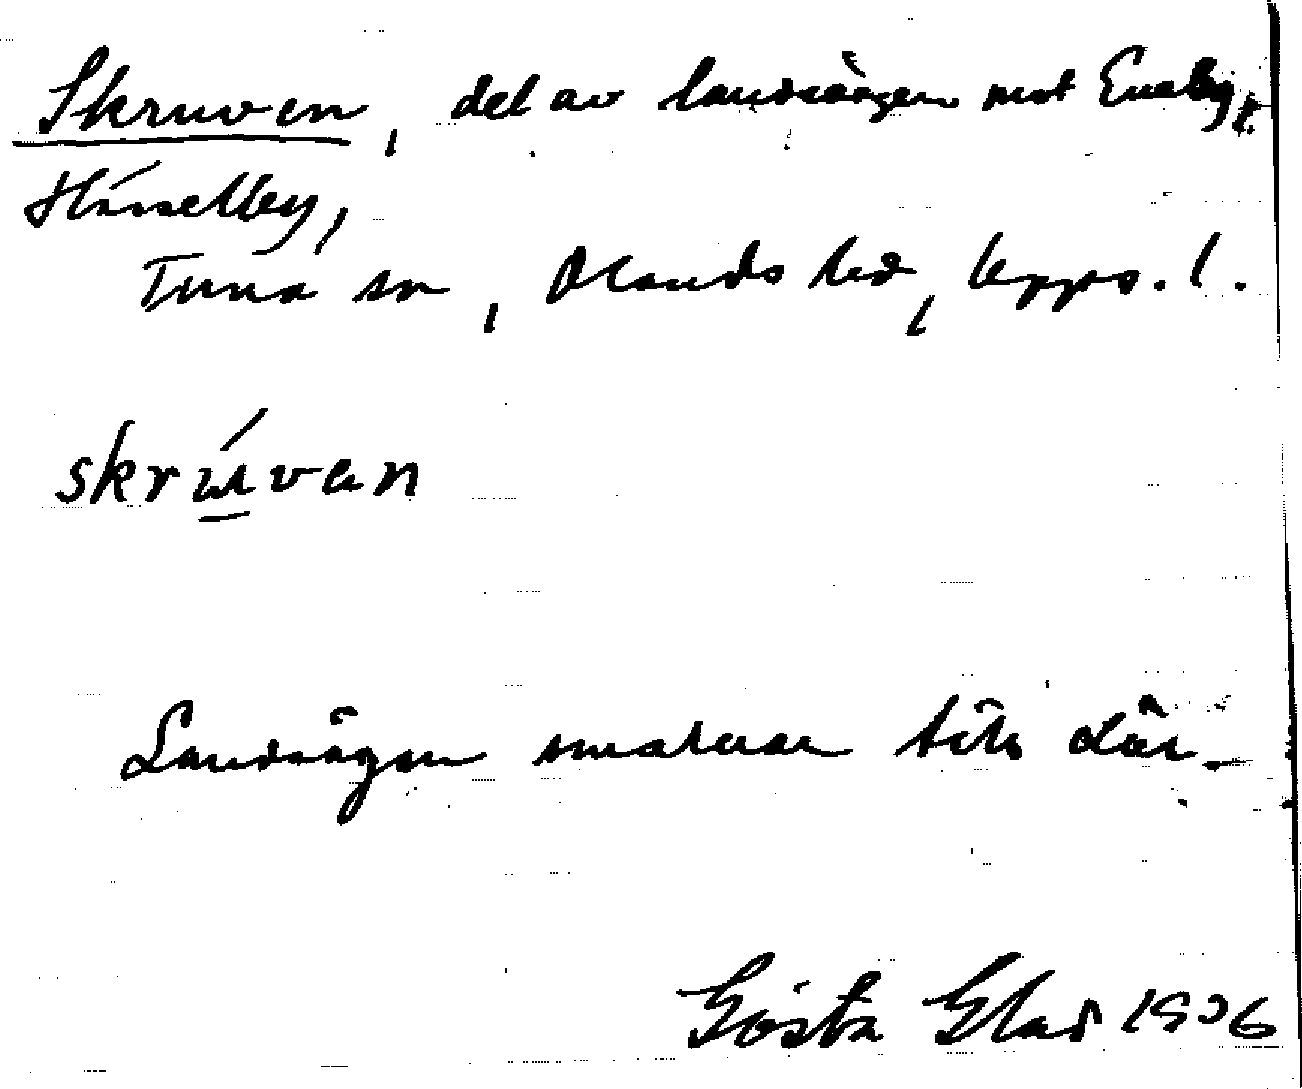 Skruven, del av landsvägen mot Eneby, t.
Hässelby,
Tuna sn, Olands hd, Upps. l.
skrúvan
Landsvägen smalnar till där.
Gösta Glad 1936